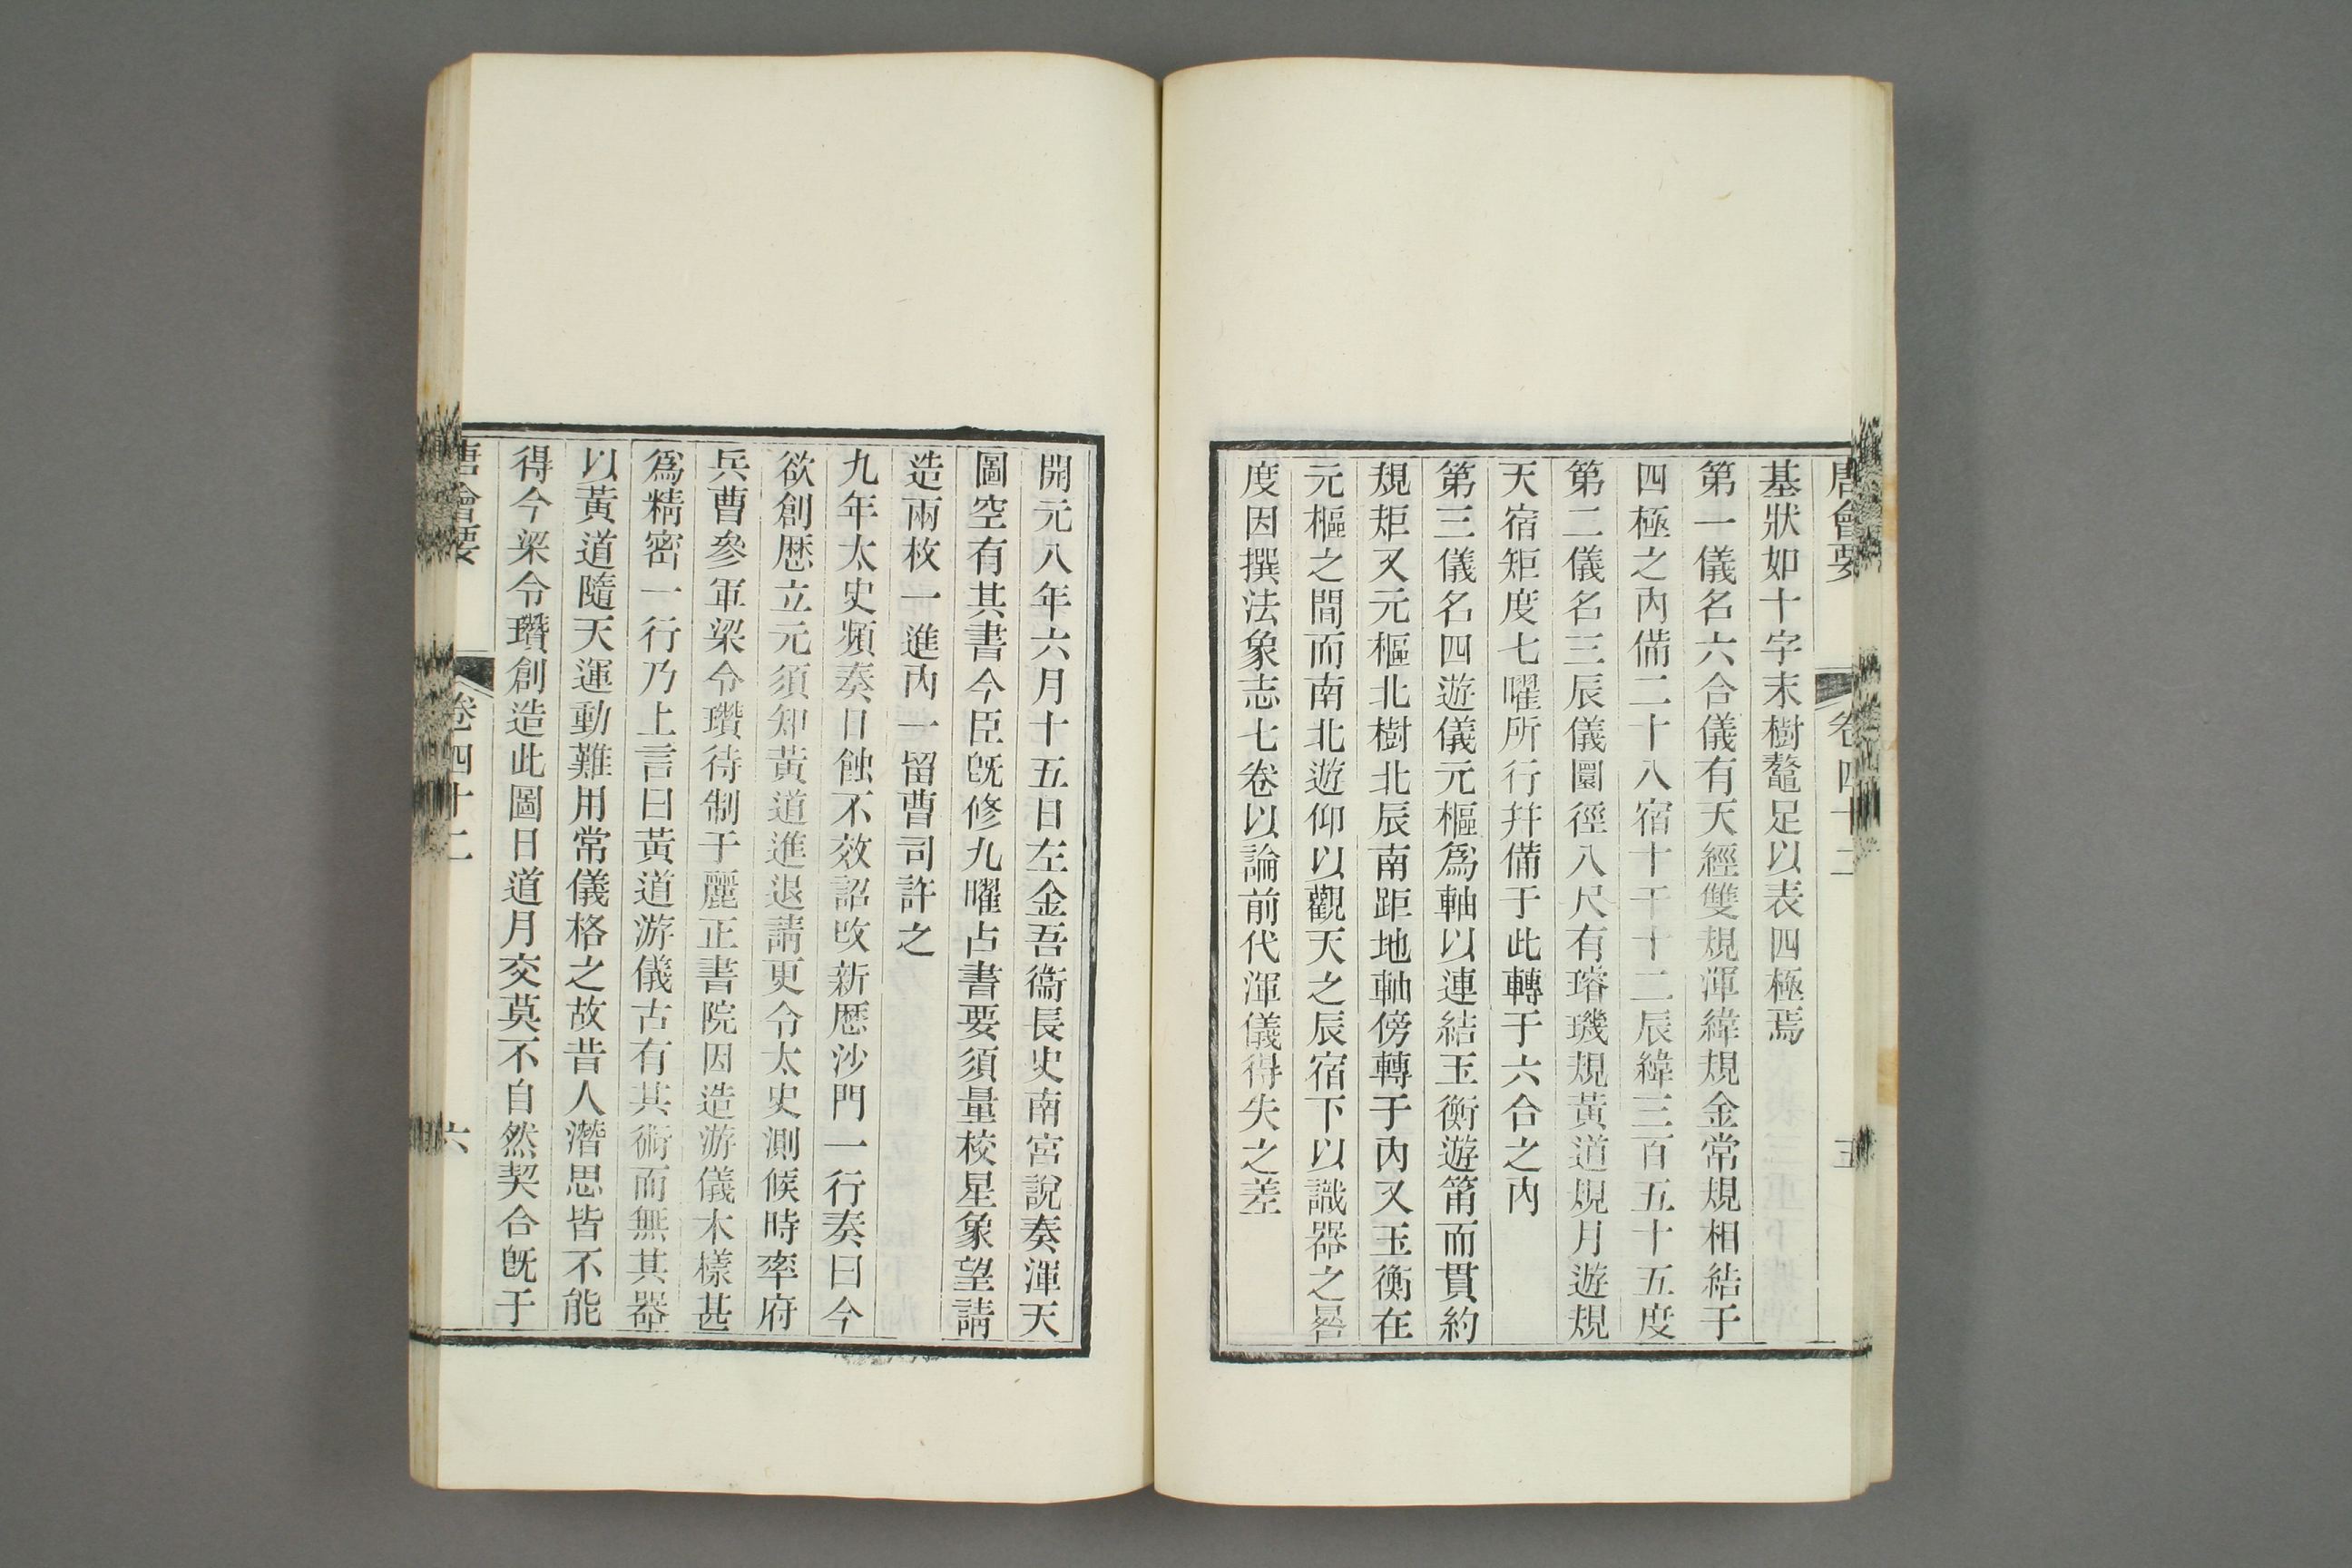 唐會要 卷四十二 五
基狀如十字末樹鼇足以表四極焉
第一儀名六合儀有天經雙規渾緯規金常規相結于
四極之內備二十八宿十干十二辰緯三百五十五度
第二儀名三辰儀圜徑八尺有璿璣規黃道規月遊規
天宿矩度七曜所行幷備于此轉于六合之內
第三儀名四遊儀元樞爲軸以連結玉衡遊筩而貫約
規矩又元樞北樹北辰南距地軸傍轉于內又玉衡在
元樞之間而南北遊仰以觀天之辰宿下以識器之晷
度因撰法象志七卷以論前代渾儀得失之差
開元八年六月十五日左金吾衞長史南宮說奏渾天
圖空有其書今臣旣修九曜占書要須量校星象望請
造兩枚一進內一留曹司許之
九年太史頻奏日蝕不效詔改新厯沙門一行奏曰今
欲創厯立元須知黃道進退請更令太史測候時率府
兵曹參軍梁令瓚待制于麗正書院因造游儀木樣甚
爲精密一行乃上言曰黃道游儀古有其術而無其器
以黃道隨天運動難用常儀格之故昔人潛思皆不能
得今梁令瓚創造此圖日道月交莫不自然契合旣于
唐會要 卷四十二 六